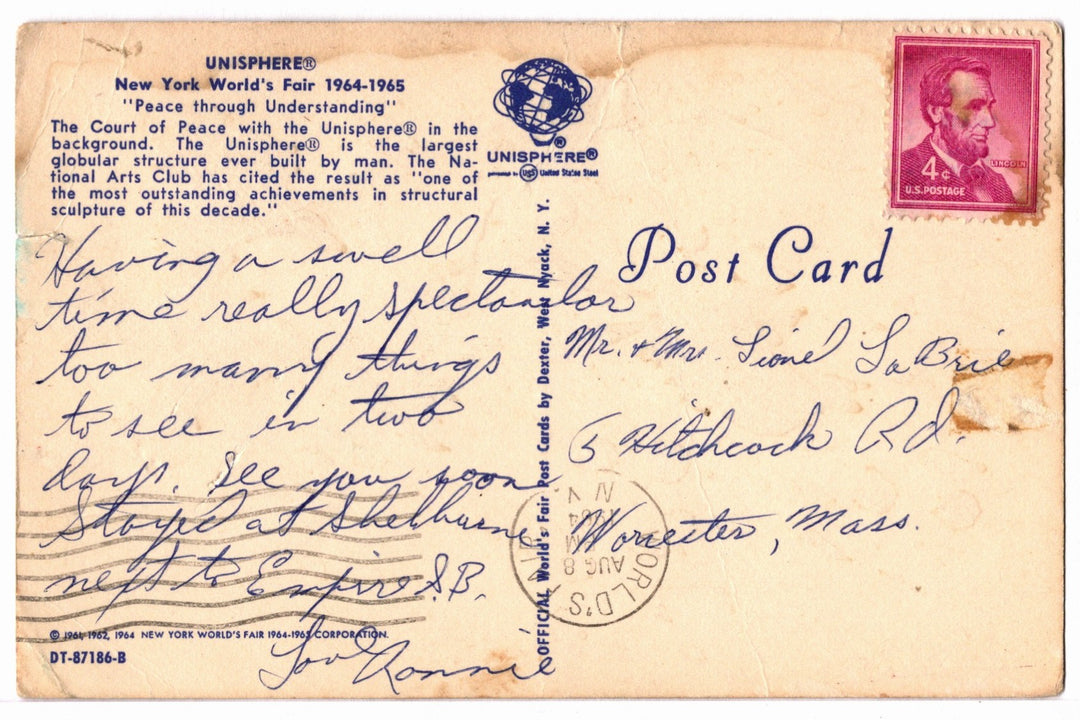 UNISPHERE®
New York World's Fair 1964-1965
"Peace through Understanding"
The Court of Peace with the Unisphere® in the
background. The Unisphere® is the largest
globular structure ever built by man. The Na-
tional Arts Club has cited the result as "one of
the most outstanding achievements in structural
sculpture of this decade."
Having a swell
time really spectacular
too many things
to see in two
days. See you soon
Stayed at Shelburne
next to Empire S.B.
Love Ronnie
© 1961, 1962, 1964 NEW YORK WORLD'S FAIR 1964-1965 CORPORATION.
DT-87186-B
®
UNISPHERE®
presented by USS United States Steel
OFFICIAL World's Fair Post Cards by Dexter, West Nyack, N. Y.
LINCOLN
4¢
U.S. POSTAGE
Post Card
Mr. & Mrs. Lionel LaBrie
6 Hitchcock Rd.
Worcester, Mass.
WORLD'S
AUG 8
PM
1964
N Y